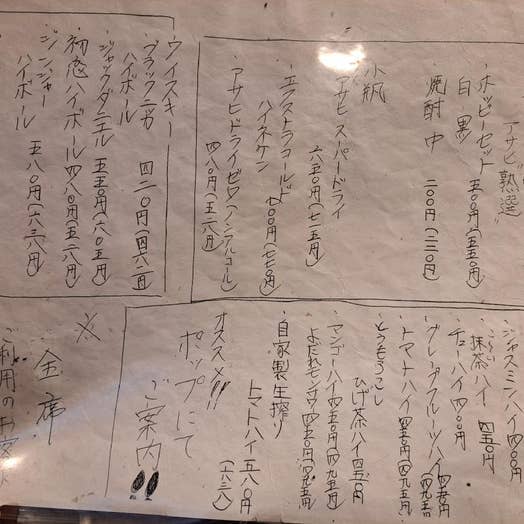 アサヒ 熟選
・ホッピーセット
白 黒 五〇〇円(五五〇円)
焼酎 中 二〇〇円(二二〇円)
小瓶
アサヒ スーパードライ
六五〇円(七一五円)
・エクストラコールド
ハイネケン 七〇〇円(七七〇円)
・アサヒドライゼロ(ノンアルコール)
四八〇円(五二八円)
ウイスキー
・ブラックニッカ
ハイボール 四二〇円(四六二円)
・ジャックダニエル 五五〇円(六〇五円)
・初恋ハイボール 四八〇円(五二八円)
・ジンジャー
ハイボール 五八〇円(六三八円)
・ジャスミンハイ 四〇〇円
抹茶ハイ 四五〇円
・チューハイ 四〇〇円
・グレープフルーツハイ 四五〇円(四九五円)
・トマトハイ 四五〇円(四九五円)
・とうもろこし
ひげ茶ハイ 四五〇円
・マンゴーハイ 四五〇円(四九五円)
四五〇円(四九五円)
・自家製生搾り
トマトハイ 五八〇円
(六三八)
オススメ!!
ポップにて
ご案内!!
※ 全席
ご利用のお客